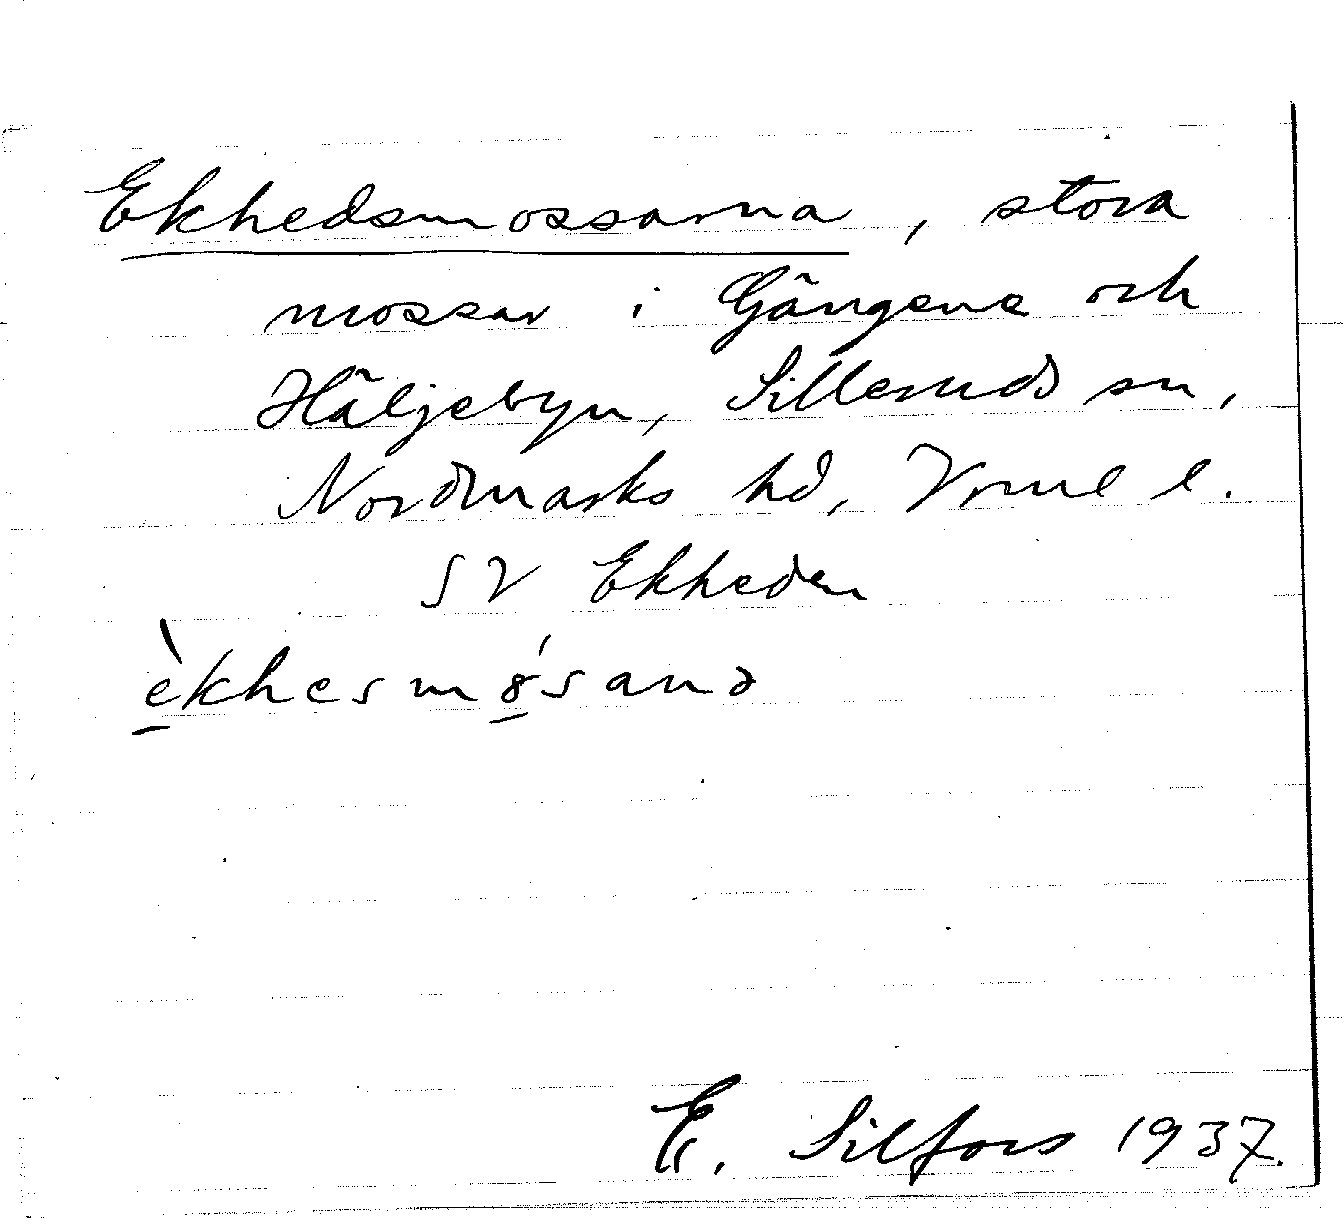 Ekhedsmossarna, stora
mossar i Gängene och
Häljebyn, Silleruds sn,
Nordmarks hd, Vrml l.
SV Ekheden
èkhesmǿsanə
E. Silfors 1937.